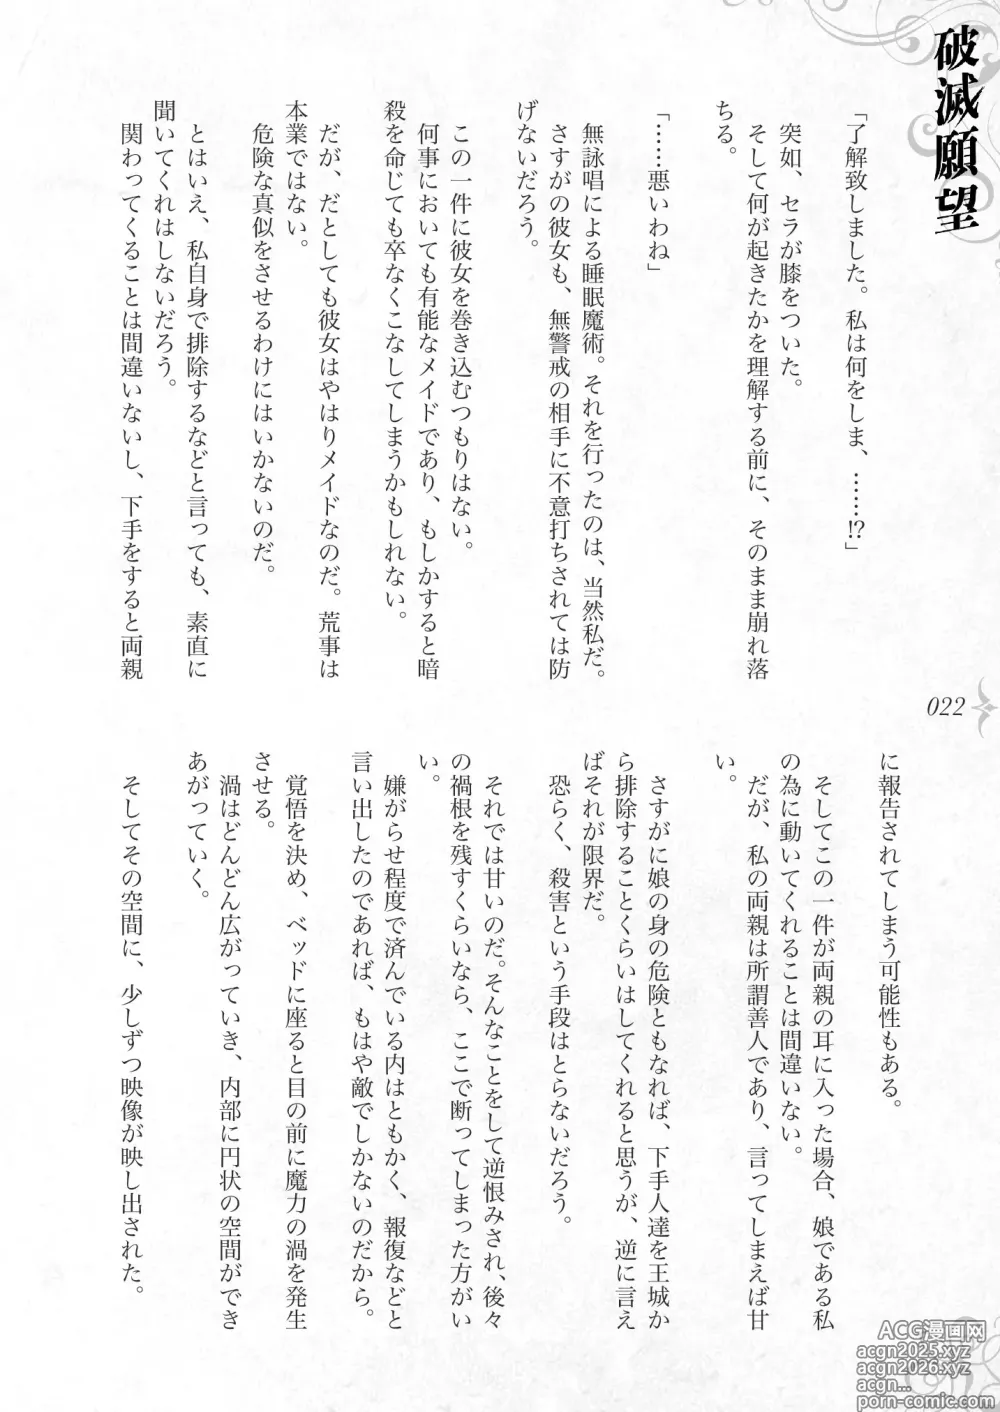 破滅願望
「了解致しました。私は何をしま、……!?」
突如、セラが膝をついた。
そして何が起きたかを理解する前に、そのまま崩れ落
ちる。
「……悪いわね」
無詠唱による睡眠魔術。それを行ったのは、当然私だ。
さすがの彼女も、無警戒の相手に不意打ちされては防
げないだろう。
この一件に彼女を巻き込むつもりはない。
何事においても有能なメイドであり、もしかすると暗
殺を命じても卒なくこなしてしまうかもしれない。
だが、だとしても彼女はやはりメイドなのだ。荒事は
本業ではない。
危険な真似をさせるわけにはいかないのだ。
とはいえ、私自身で排除するなどと言っても、素直に
聞いてくれはしないだろう。
関わってくることは間違いないし、下手をすると両親
022
に報告されてしまう可能性もある。
そしてこの一件が両親の耳に入った場合、娘である私
の為に動いてくれることは間違いない。
だが、私の両親は所謂善人であり、言ってしまえば甘
い。
さすがに娘の身の危険ともなれば、下手人達を王城か
ら排除することくらいはしてくれると思うが、逆に言え
ばそれが限界だ。
恐らく、殺害という手段はとらないだろう。
それでは甘いのだ。そんなことをして逆恨みされ、後々
の禍根を残すくらいなら、ここで断ってしまった方がい
い。
嫌がらせ程度で済んでいる内はともかく、報復などと
言い出したのであれば、もはや敵でしかないのだから。
覚悟を決め、ベッドに座ると目の前に魔力の渦を発生
させる。
渦はどんどん広がっていき、内部に円状の空間ができ
あがっていく。
そしてその空間に、少しずつ映像が映し出された。
ACG漫画网
acgn2025.xyz
acgn2026.xyz
acgn...
porn-comic.com